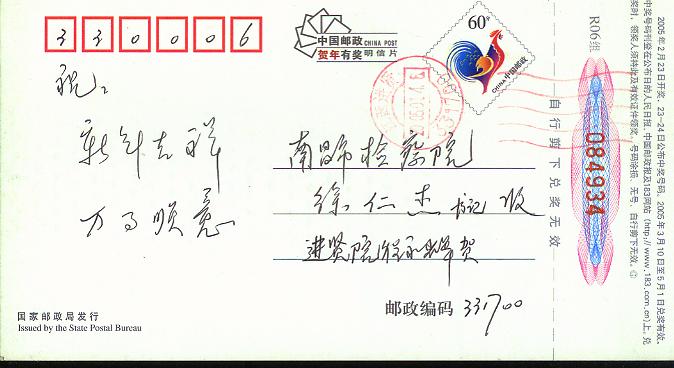 330006
中国邮政 CHINA POST
贺年有奖 明信片
60分
中国邮政 CHINA
祝：
新年吉祥
万事顺意
南昌市检察院
徐仁杰 收
进贤院 贺
邮政编码 331700
国家邮政局发行
Issued by the State Postal Bureau
自行剪下兑奖无效
R06组
084934
2005年2月23日开奖，23—24日公布中奖号码，2005年3月10日至5月1日兑奖有效。
中奖号码刊登在公布日的人民日报、中国邮政报及183网站（http://www.183.com.cn)上。兑
奖时，领奖人须持此及有效证件领奖。号码涂损、无号、自行剪下无效。